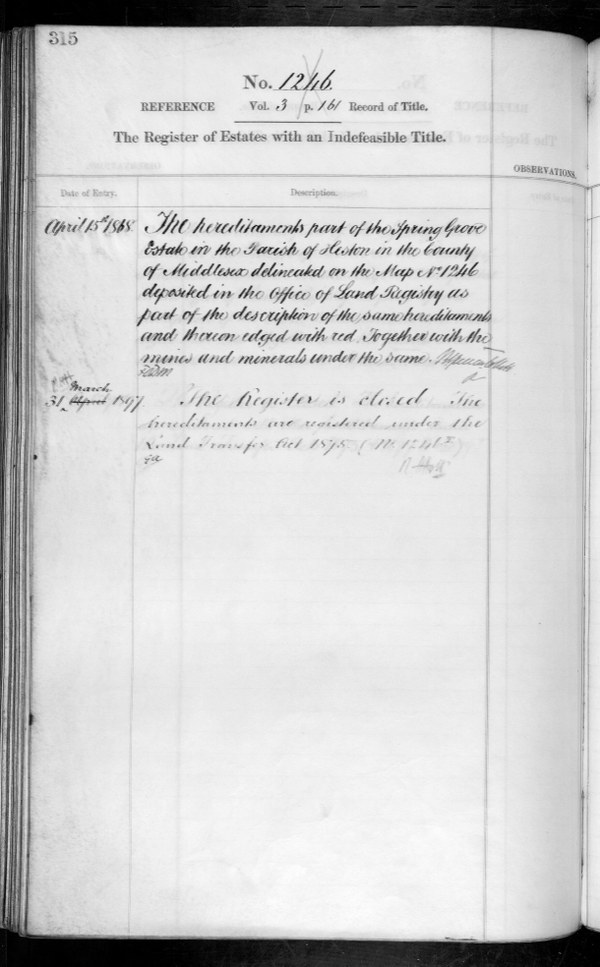 315
No. 1246.
REFERENCE Vol. 3 p. 161 Record of Title.
The Register of Estates with an Indefeasible Title.
OBSERVATIONS.
Date of Entry. Description.
April 15th 1868. The hereditaments part of the Spring Grove
Estate in the Parish of Heston in the County
of Middlesex delineated on the Map No 1246
deposited in the Office of Land Registry as
part of the description of the same hereditaments
and thereon edged with red Together with the
mines and minerals under the same.
March
31 April 1897 The Register is closed The
hereditaments are registered under the
Land Transfer Act 1875 (No 1246